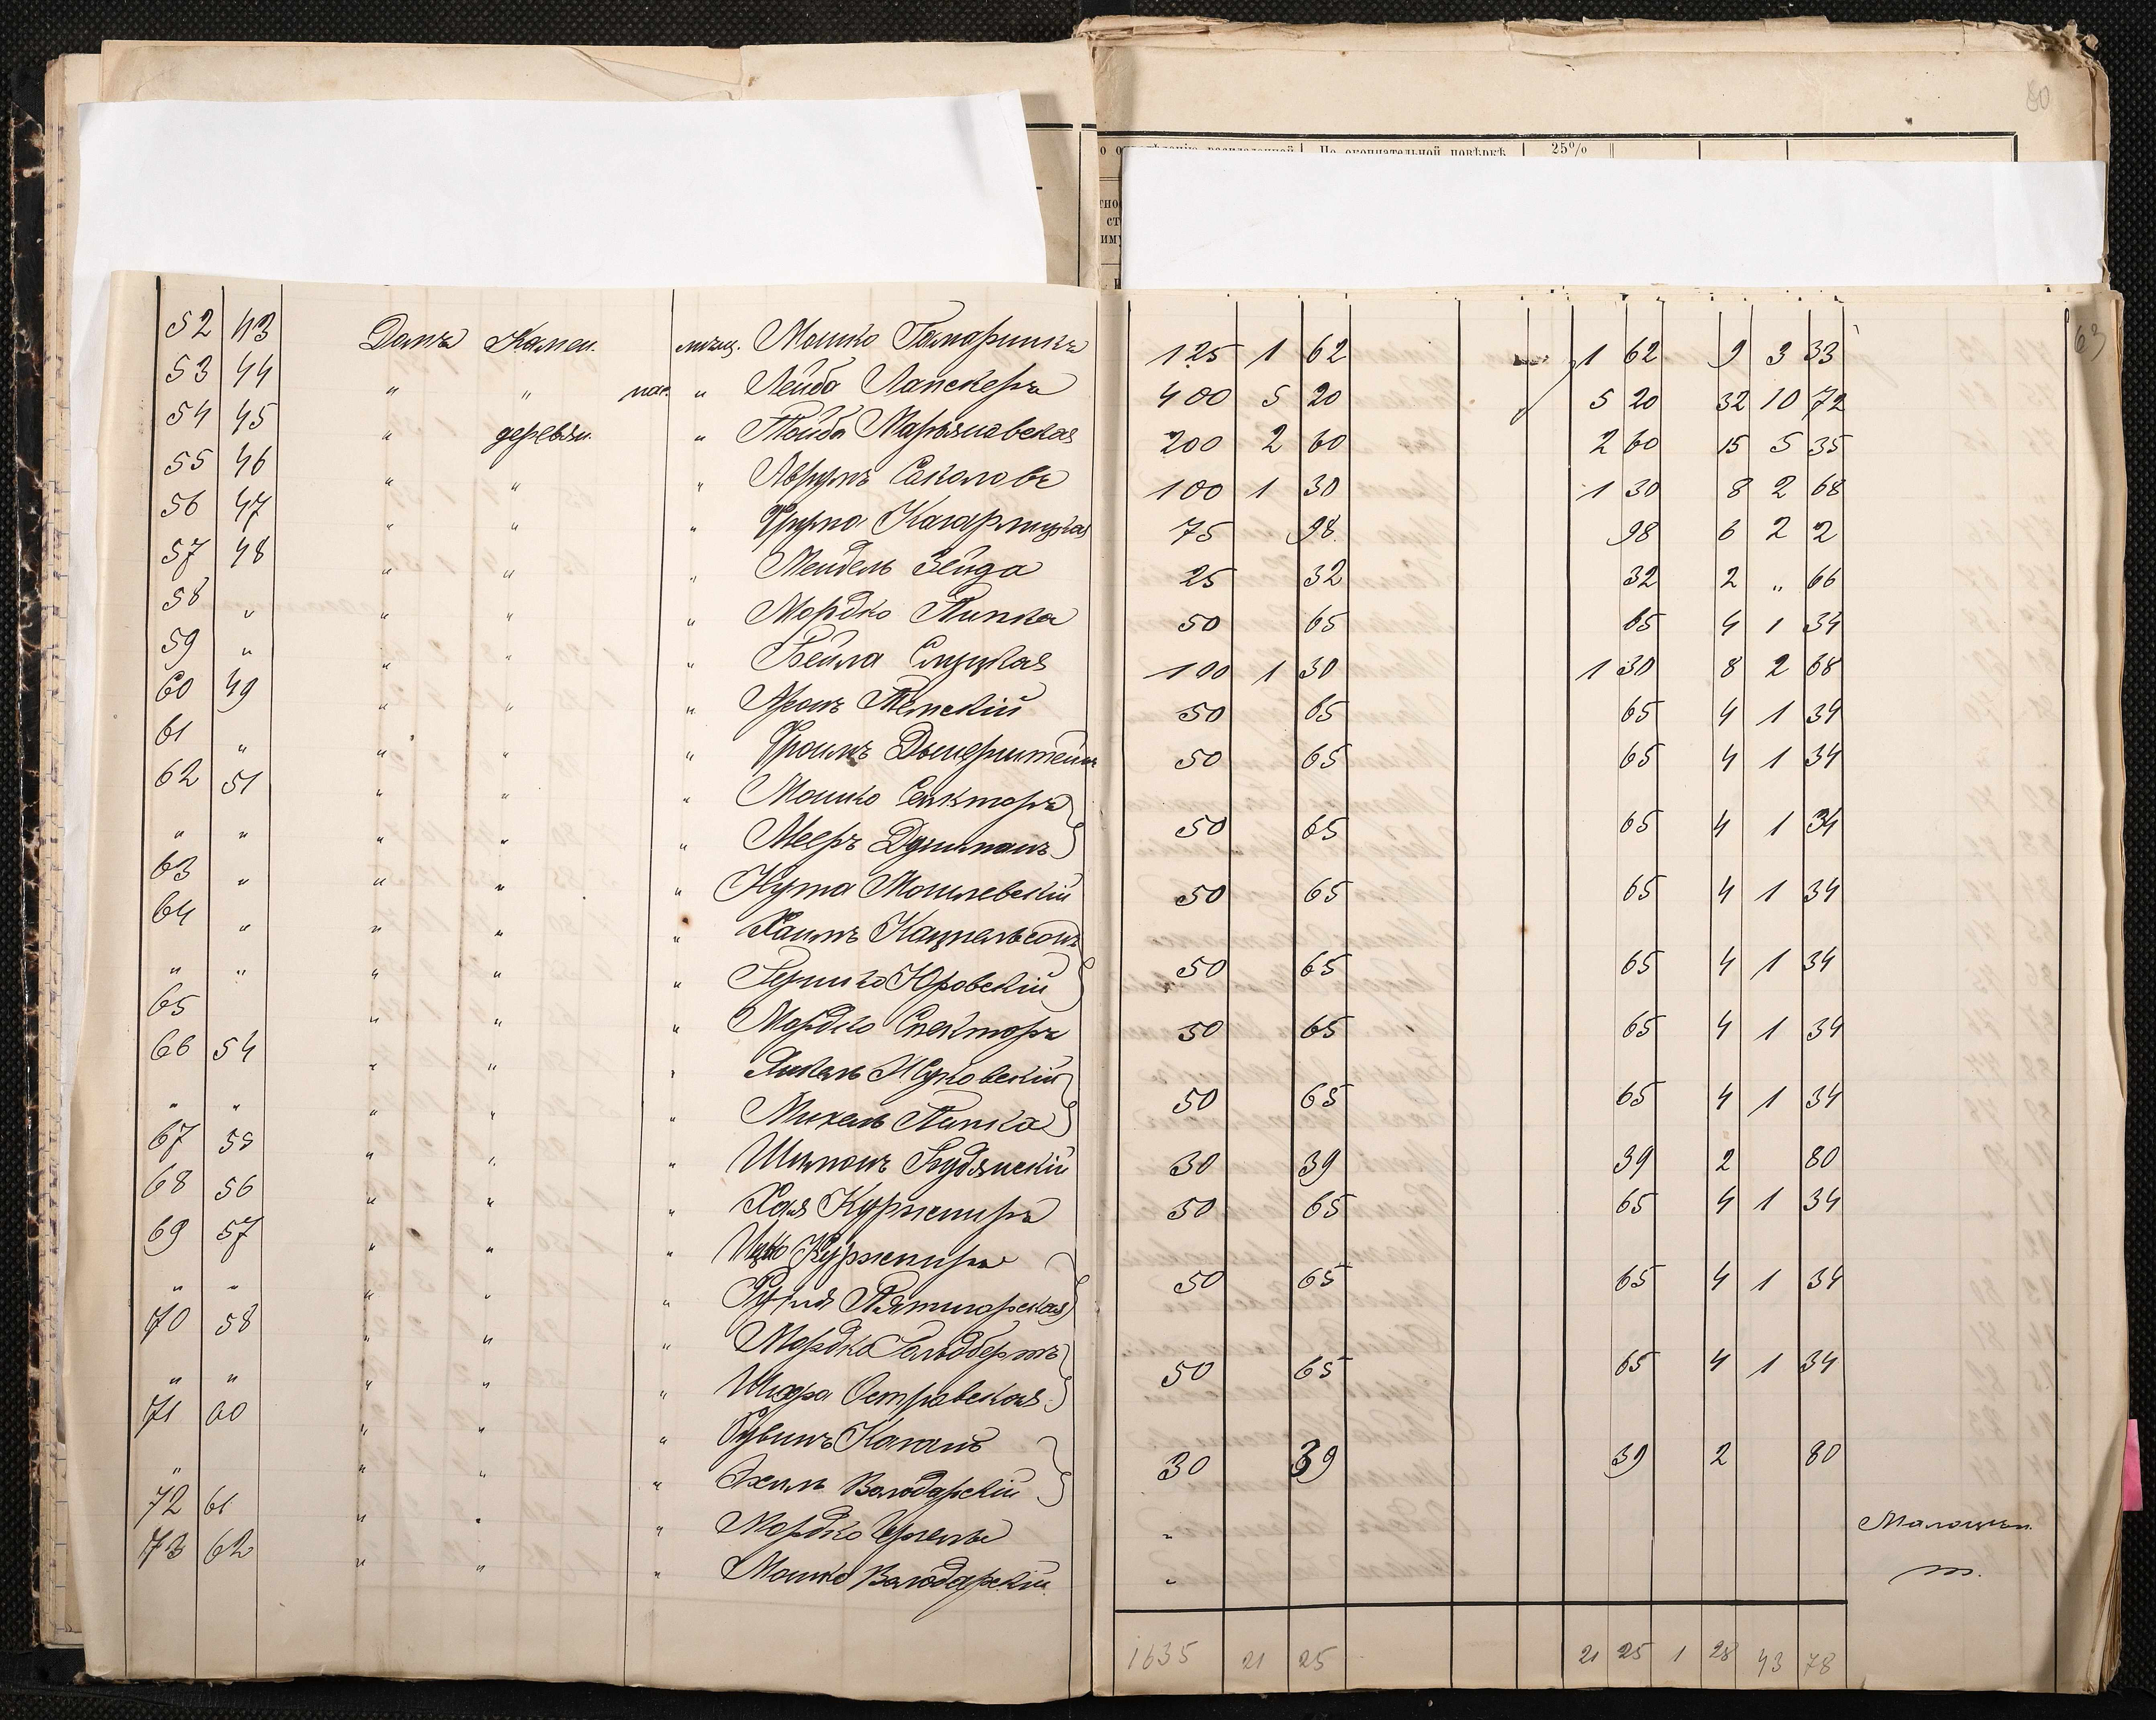 80
25%
63
52 43 Домъ Камен. мѣщ. Мошко Гамарникъ 125 1 62 1 62 9 3 33
53 44 " " " Лейба Ланскеръ 400 5 20 5 20 32 10 72
54 45 " деревян. " 200 2 60 2 60 15 5 35
55 46 " " " Аврумъ Соколовъ 100 1 30 1 30 8 2 68
56 47 " " " Фрума Кагарлицкая 75 98 98 6 2 2
57 48 " " " Мендель Зейда 25 32 32 2 " 66
58 " " " " Мордко Липка 50 65 65 4 1 34
59 " " " " Бейла Слуцкая 100 1 30 1 30 8 2 68
60 49 " " " Аронъ 50 65 65 4 1 34
61 " " " " Фроимъ 50 65 65 4 1 34
62 51 " " " Мошко Спекторъ
" " " " " Мееръ 50 65 65 4 1 34
63 " " " " Нута 50 65 65 4 1 34
64 " " " " Хаимъ Кацнельсонъ
" " " " " Гершко Юровскій 50 65 65 4 1 34
65 " " " Мордко Спекторъ 50 65 65 4 1 34
66 54 " " " Янкель
" " " " " Михель Липка 50 65 65 4 1 34
67 55 " " " Шимонъ Будянскій 30 39 39 2 80
68 56 " " " Хая Куржниръ 50 65 65 4 1 34
69 57 " " " Ицко Куржниръ
" " " " " Пятигорская 50 65 65 4 1 34
70 58 " " " Мордко Гольдбергъ
" " " " " Шифра Островская 50 65 65 4 1 34
71 60 " " " Рувинъ Каганъ
" " " " Эхиль Володарскій 30 39 39 2 80
72 61 " " " Мордко "
73 62 " " " Мошко Володарскій "
1635 21 25 21 25 1 28 43 78